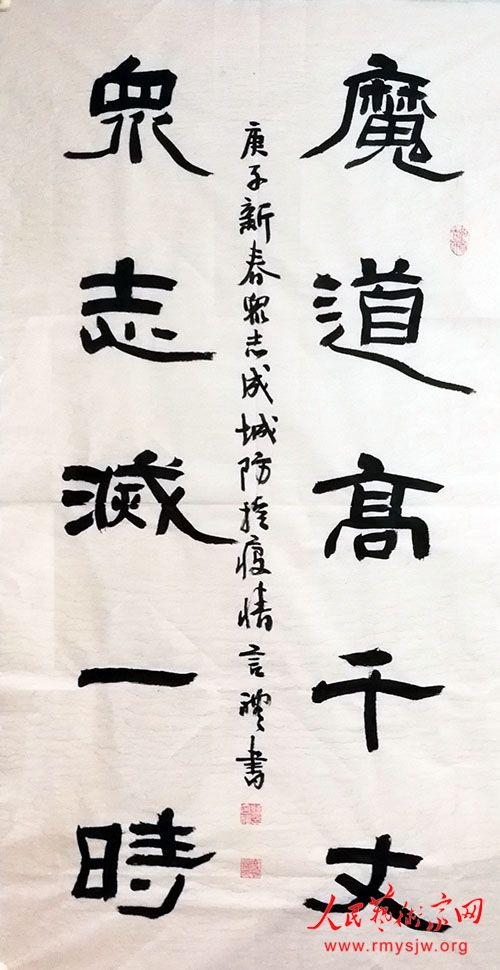 魔道高千丈
眾志滅一時
庚子新春眾志成城防控疫情言禮書
人民藝術家网
www.rmysjw.org